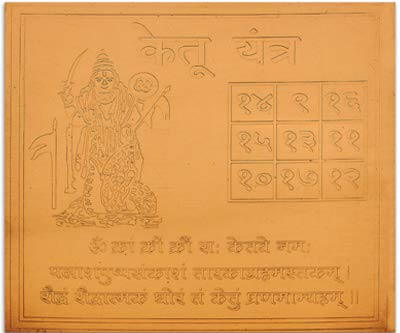 केतू यंत्र
१४ ९ १६
१५ १३ ११
१० १७ १२
ॐ क्रां क्रीं क्रौं सः केतवे नमः
पलाशंपुष्पसंकाशं तारकाग्रहमस्तकम् ।
रौद्रं रौद्रात्मकं घोरं तं केतुं प्रणमाम्यहम् ॥